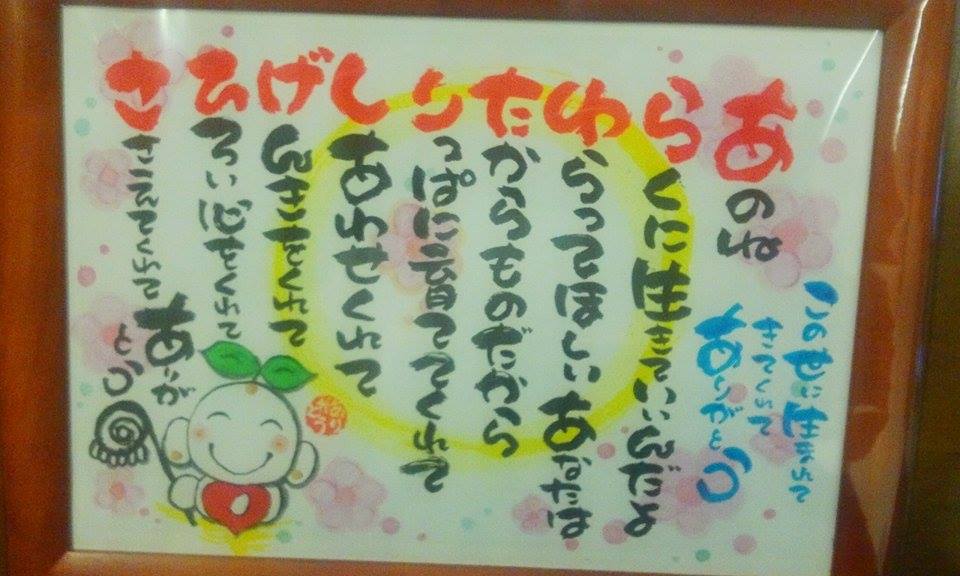 この世に生まれて
きてくれて
ありがとう
あのね
らくに生きていいんだよ
わらってほしいあなたは
たからものだから
りっぱに育ててくれて
しあわせくれて
げんきをくれて
ひろい心をくれて
ささえてくれて
ありが
とう